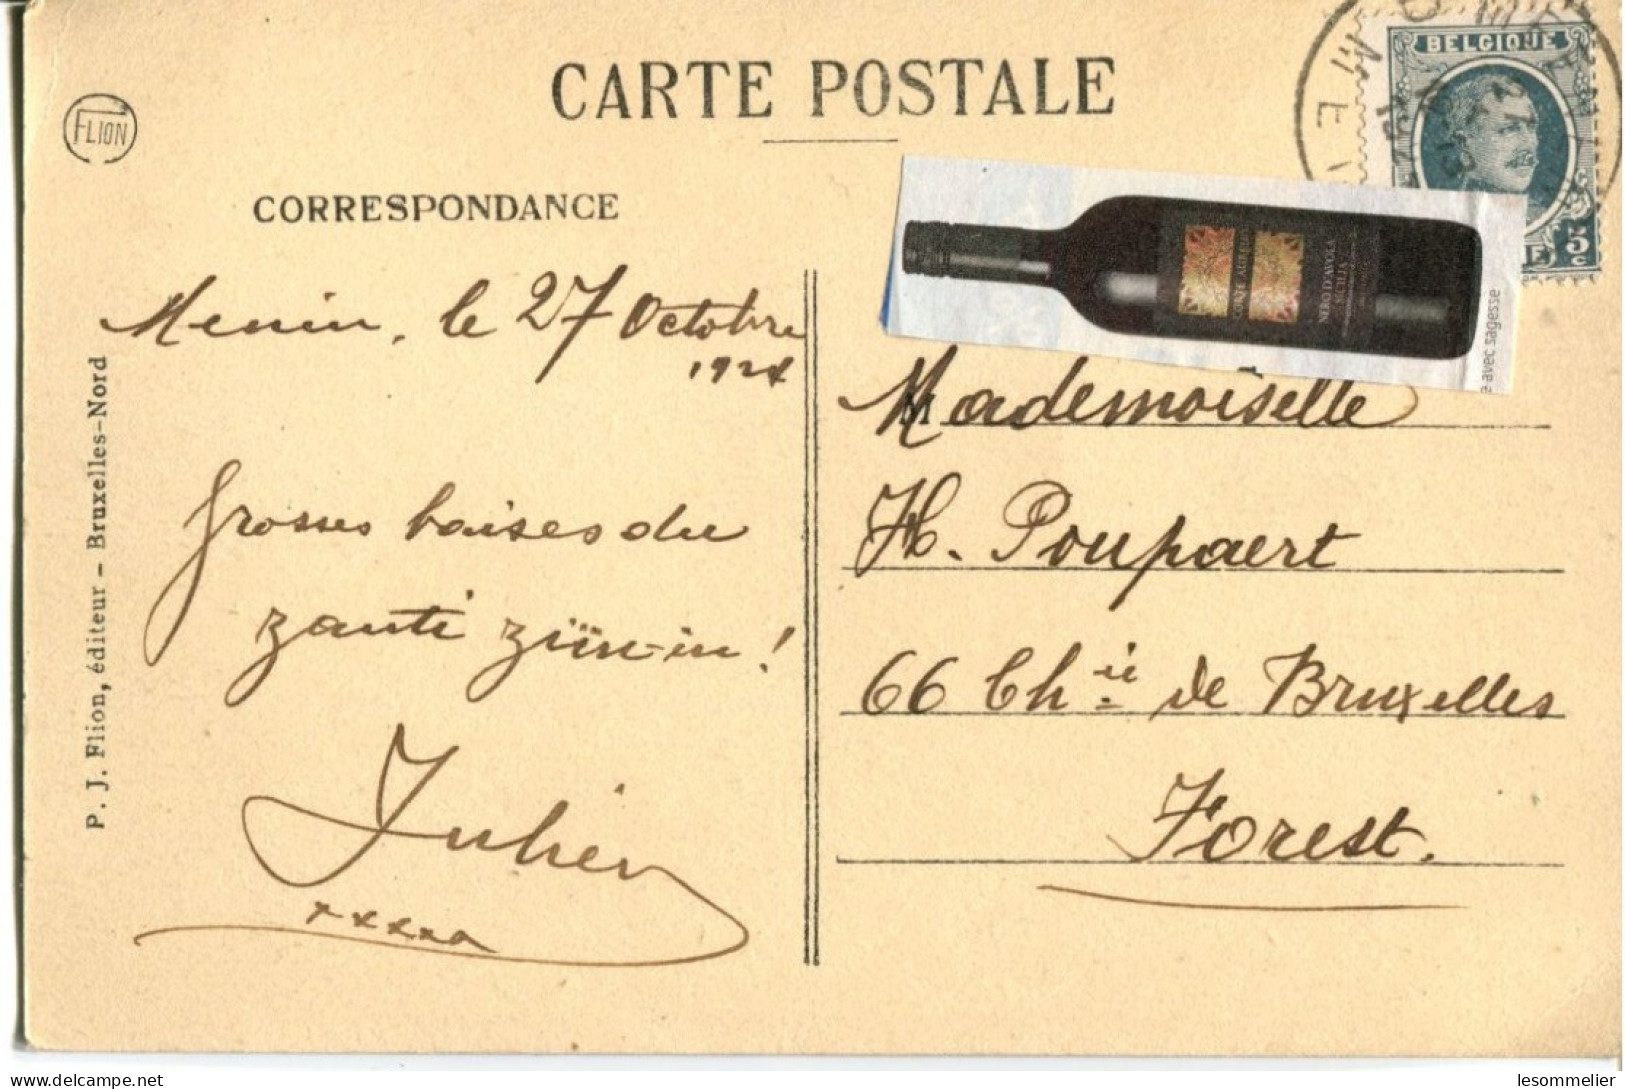 CARTE POSTALE
FLION
BELGIQUE
5
c
CORRESPONDANCE
NERO D'AVOLA
SICILIA
e avec sagesse
Menin, le 27 Octobre
1924
Grosses baises du
zanti züin-in!
Julien
xxxxx
P. J. Flion, éditeur – Bruxelles-Nord
Mademoiselle
H. Poupaert
66 Chée de Bruxelles
Forest.
lesommelier